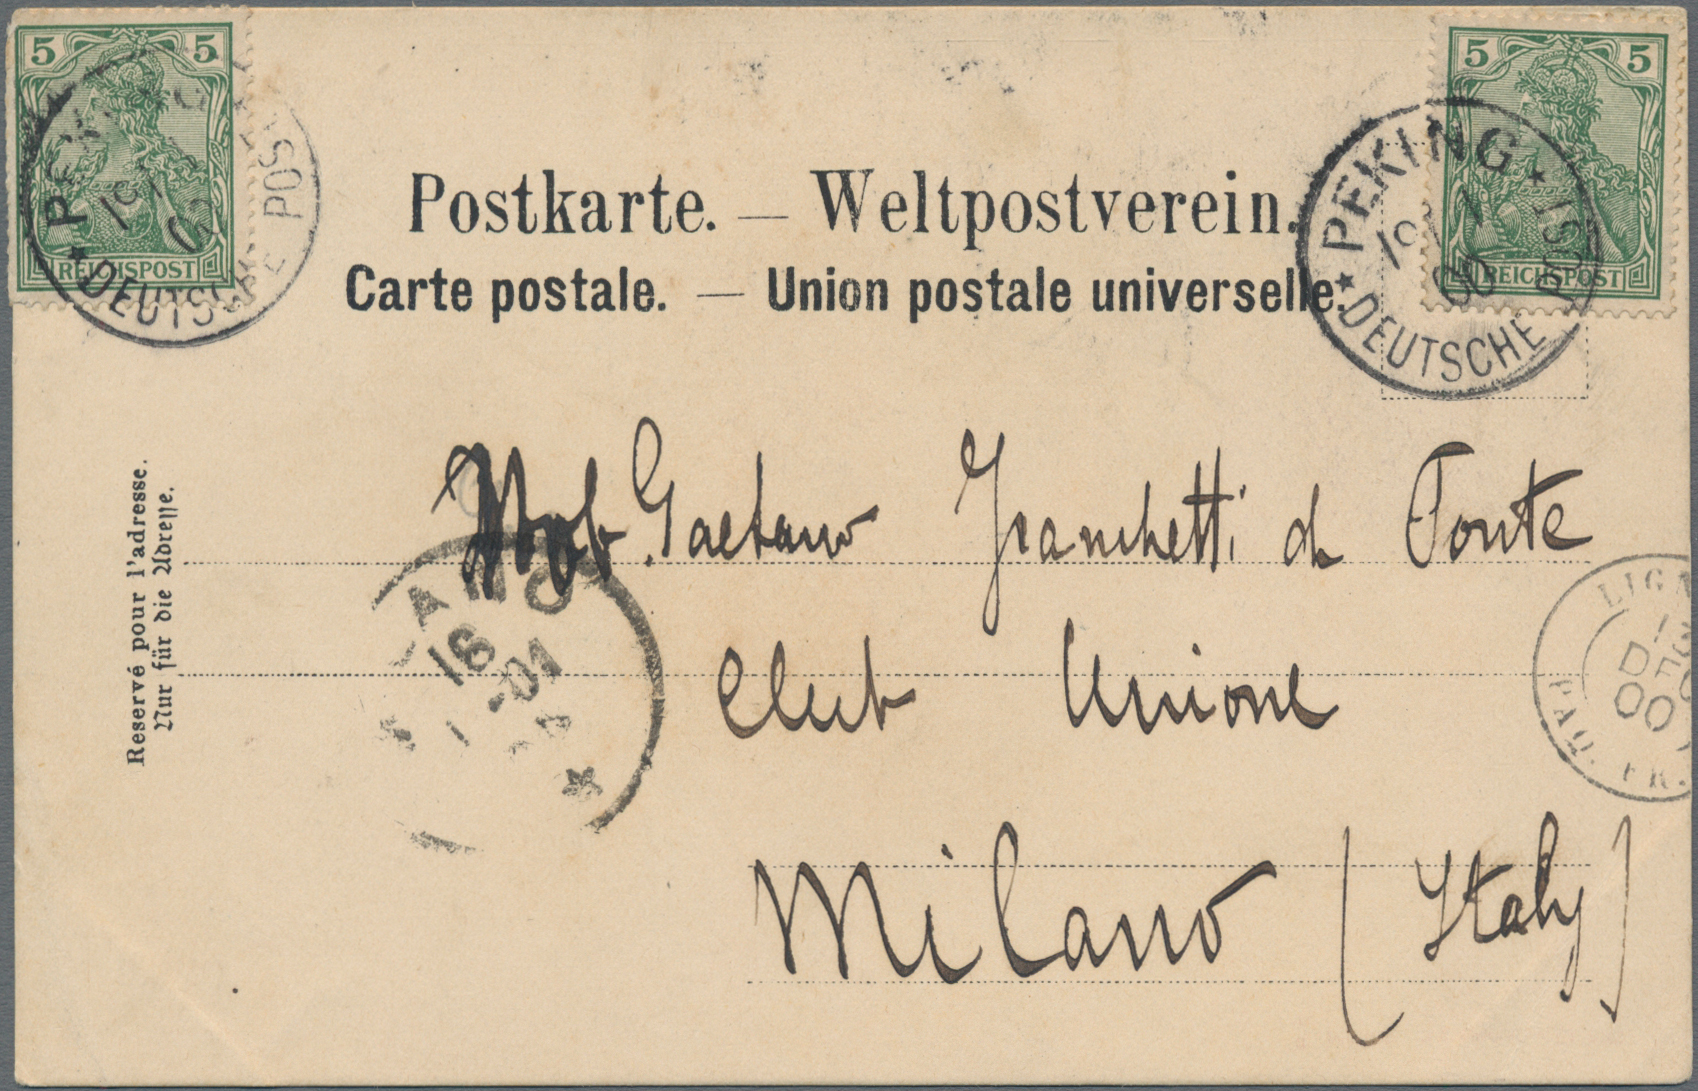 5 5
REICHSPOST
PEKING
19 1
DEUTSCHE POST
5 5
REICHSPOST
PEKING
19 1
00
DEUTSCHE POST
Postkarte. — Weltpostverein.
Carte postale. — Union postale universelle.
Reservé pour l'adresse.
Nur für die Adresse.
Gaetano Franchetti de Ponte
Club Unione
Milano (Italy)
LANO
16
1 -01
LIGN
1
DEC
00
PAQ. FR.